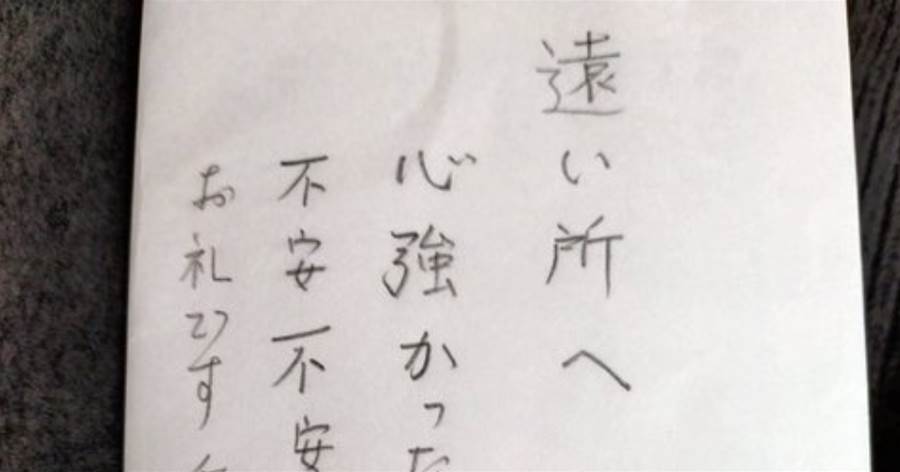 遠い所へ
心強かった
不安不安
お礼です